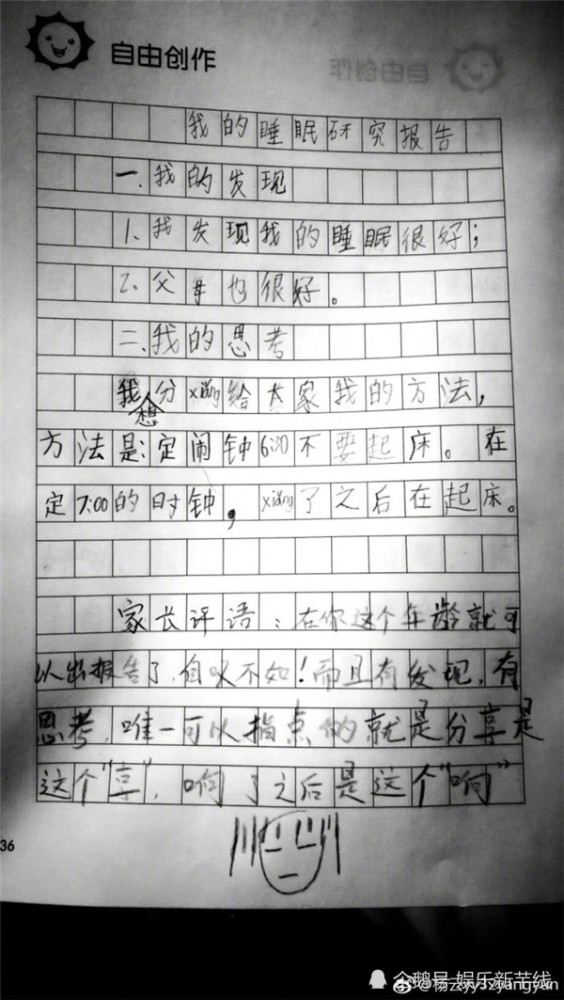 自由创作
我的睡眠研究报告
一、我的发现
1、我发现我的睡眠很好；
2、父母也很好。
二、我的思考
我想分xiǎng给大家我的方法，
方法是：定闹钟6:30不要起床。在
定7:00的时钟，xiǎng了之后在起床。
家长评语：在你这个年龄就可
以出报告了，自叹不如！而且有发现，有
思考，唯一可以指点的就是分享是
这个“享”，响了之后是这个“响”
36
企鹅号 娱乐新芒线
@杨zzyy32yangyun